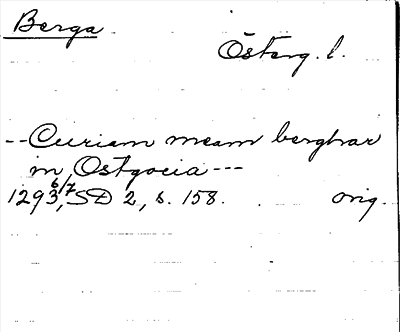 Berga
Österg. l.
-- Curiam meam berghar
in Ostgocia ---
1293 6/7, SD 2, s. 158. orig.